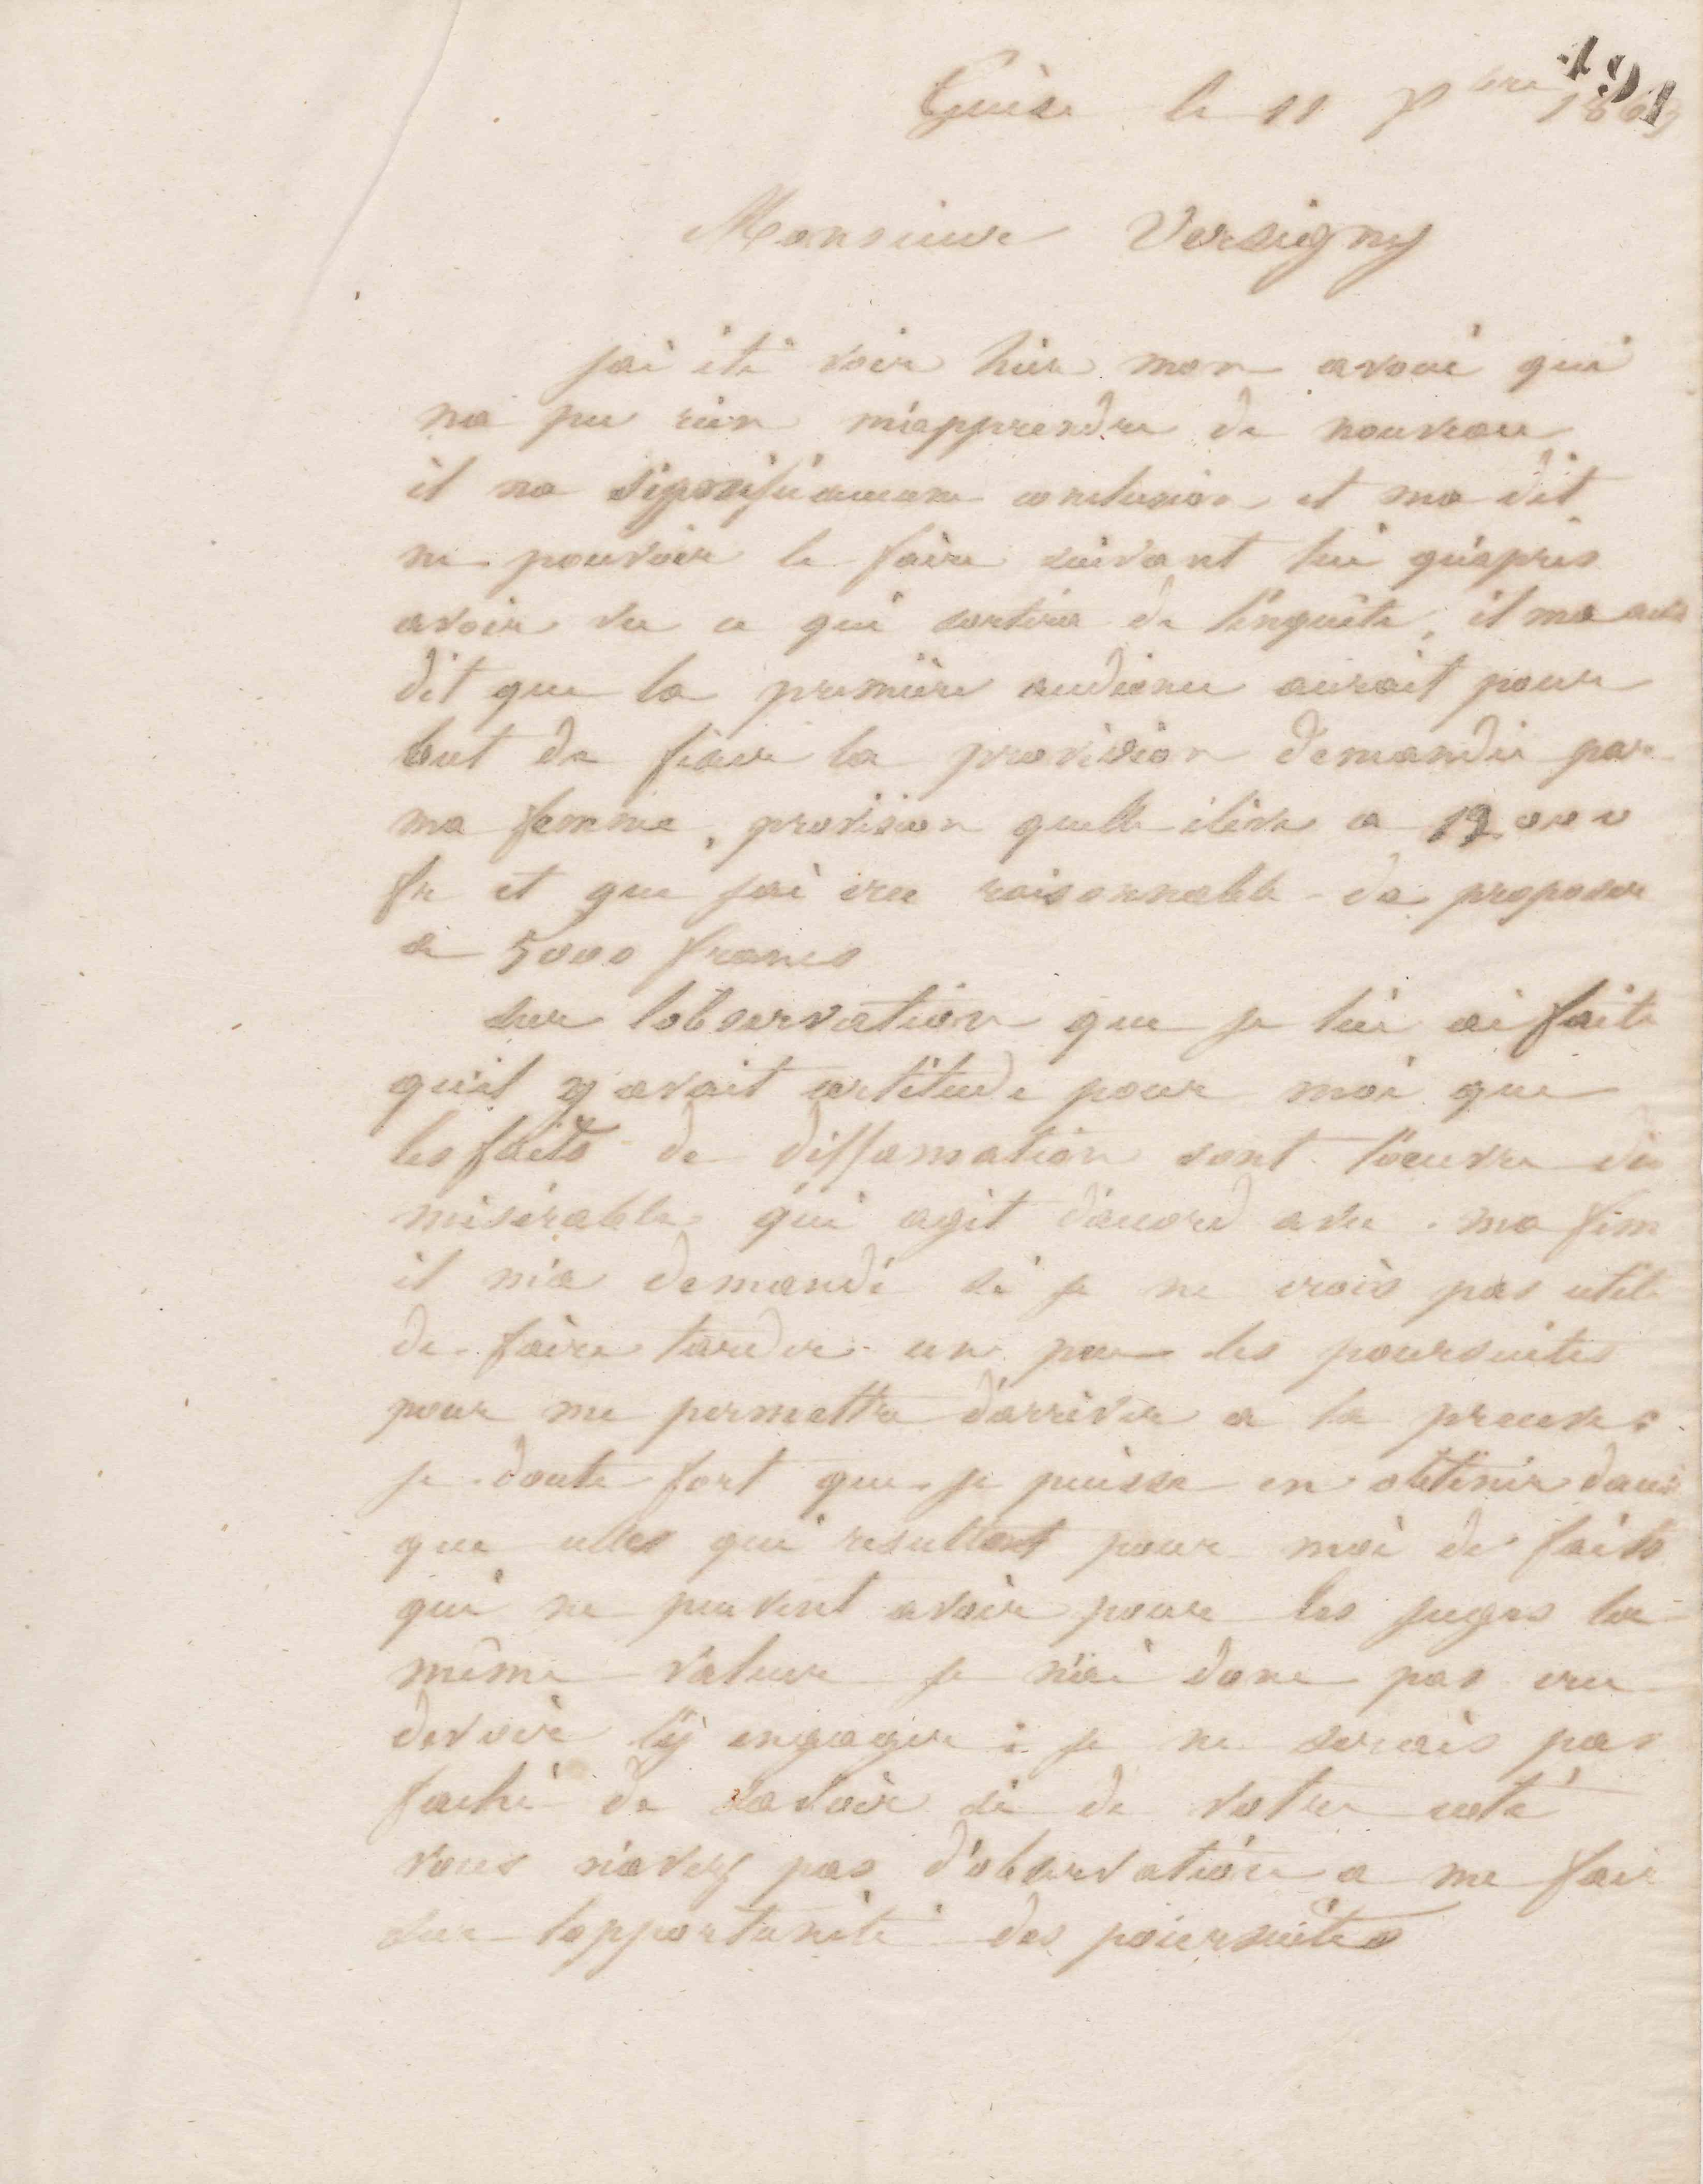 191
Guise le 11 7bre 1863
Monsieur Versigny
jai été voir hier mon avoué qui
na pu rien m'apprendre de nouveau
il na signifié aucune conclusion et ma dit
ne pouvoir le faire suivant lui qu'après
avoir vu ce qui sortira de l'enquête, il ma aussi
dit que la première audience aurait pour
but de fixer la provision demandée par
ma femme, provision quelle élève a 12000
fr et que jai cru raisonnable de proposer
à 5000 francs
sur lobservation que je lui ai faite
quil y avait certitude pour moi que
les faits de diffamation sont l'oeuvre du
misérable qui agit d'accord avec ma fem
il m'a demandé si je ne crois pas utile
de faire tarder un peu les poursuites
pour me permettre d'arriver a la preuve.
je doute fort que je puisse en obtenir dautre
que celles qui resultent pour moi de faits
qui ne peuvent avoir pour les juges la
même valeur je n'ai donc pas cru
devoir l'y engager : je ne serais pas
faché de savoir si de votre coté
vous n'avez pas d'observation a me fair
sur lopportunité des poursuites